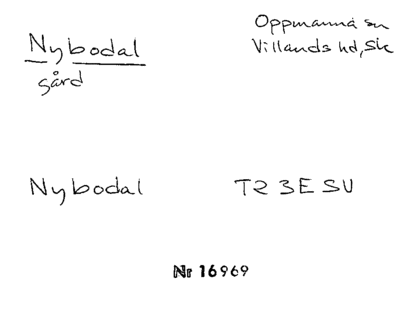 Nybodal
gård
Oppmanna sn
Villands hd, Sk
Nybodal
TR 3E SV
Nr 16969